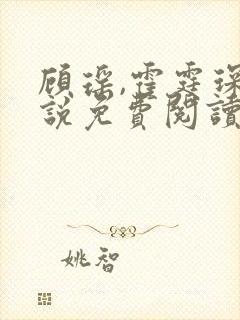 顾瑶,霍霆琛
说免费阅读
姚智